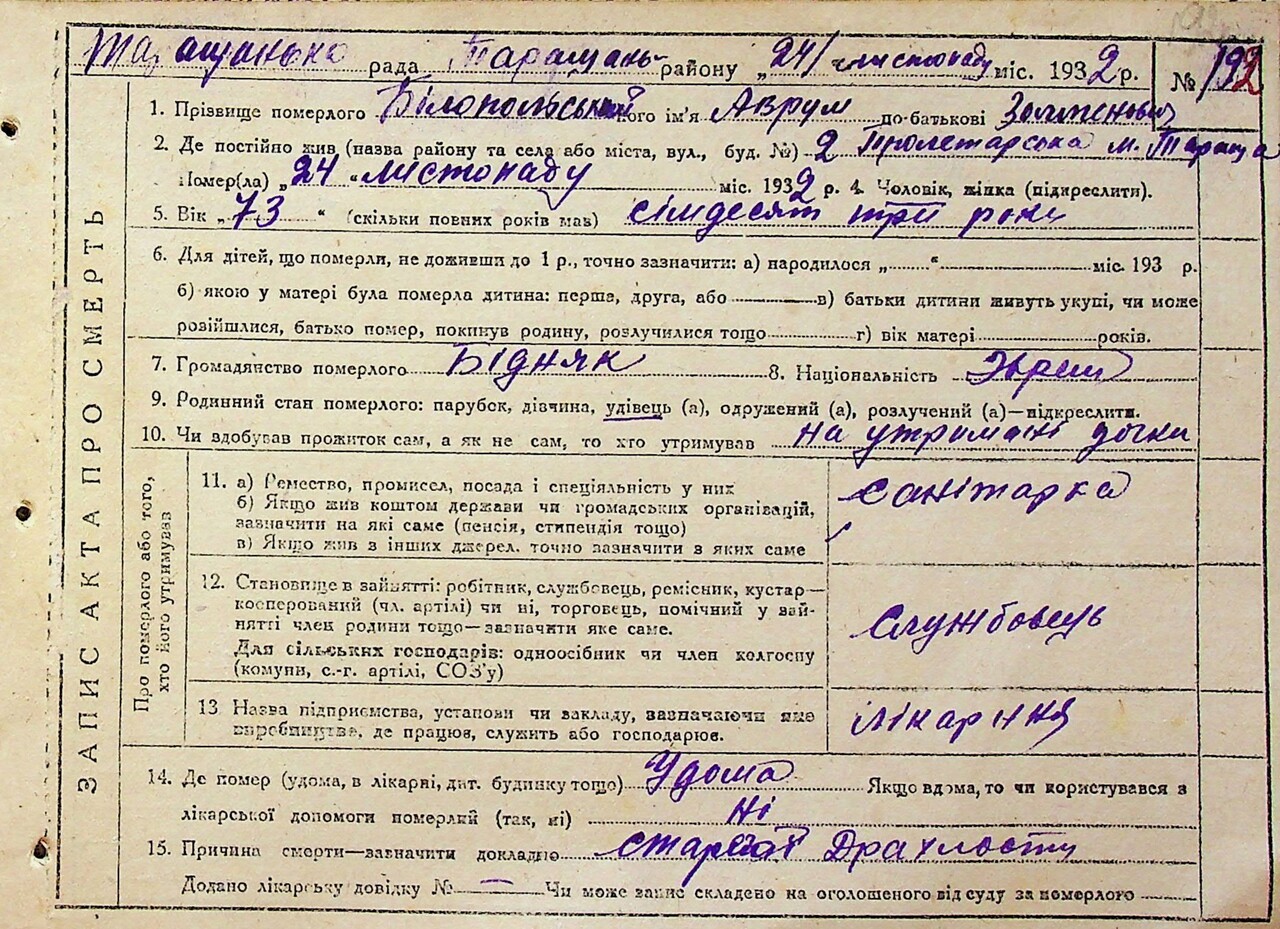 Таращанська рада Таращань- району „24" листопаду міс. 1932 р. № 192
1. Прізвище померлого Білопольський ого ім'я Аврум по-батькові
2. Де постійно жив (назва району та села або міста, вул., буд. №) 2 Пролетарська м. Тараща
Помер(ла) „24" листопаду міс. 1932 р. 4. Чоловік, жінка (підкреслити).
5. Вік „73" (скільки повних років мав) сімдесят три роки
6. Для дітей, що померли, не доживши до 1 р., точно зазначити: а) народилося „ " міс. 193 р.
б) якою у матері була померла дитина: перша, друга, або в) батьки дитини живуть укупі, чи може
розійшлися, батько помер, покинув родину, розлучилися тощо г) вік матері років.
7. Громадянство померлого Бідняк 8. Національність Эврей
9. Родинний стан померлого: парубок, дівчина, удівець (а), одружений (а), розлучений (а)—підкреслити.
10. Чи здобував прожиток сам, а як не сам, то хто утримував на утримані дочки
ЗАПИС АКТА ПРО СМЕРТЬ
Про померлого або того,
хто його утримував
11. а) Ремество, промисел, посада і спеціяльність у них
б) Якщо жив коштом держави чи громадських організацій,
зазначити на які саме (пенсія, стипендія тощо)
в) Якщо жив з інших джерел, точно зазначити з яких саме
санітарка
12. Становище в зайнятті: робітник, службовець, ремісник, кустар—
кооперований (чл. артілі) чи ні, торговець, помічний у зай-
нятті член родини тощо—зазначити яке саме.
Для сільських господарів: одноосібник чи член колгоспу
(комуни, с.-г. артілі, СОЗ'у)
Службовець
13. Назва підприємства, установи чи закладу, зазначаючи яке
виробництво, де працює, служить або господарює.
лікарня
14. Де помер (удома, в лікарні, дит. будинку тощо) Удома Якщо вдома, то чи користувався з
лікарської допомоги померлий (так, ні) ні
15. Причина смерти—зазначити докладно Драхлости
Додано лікарську довідку № — Чи може запис складено на оголошеного від суду за померлого